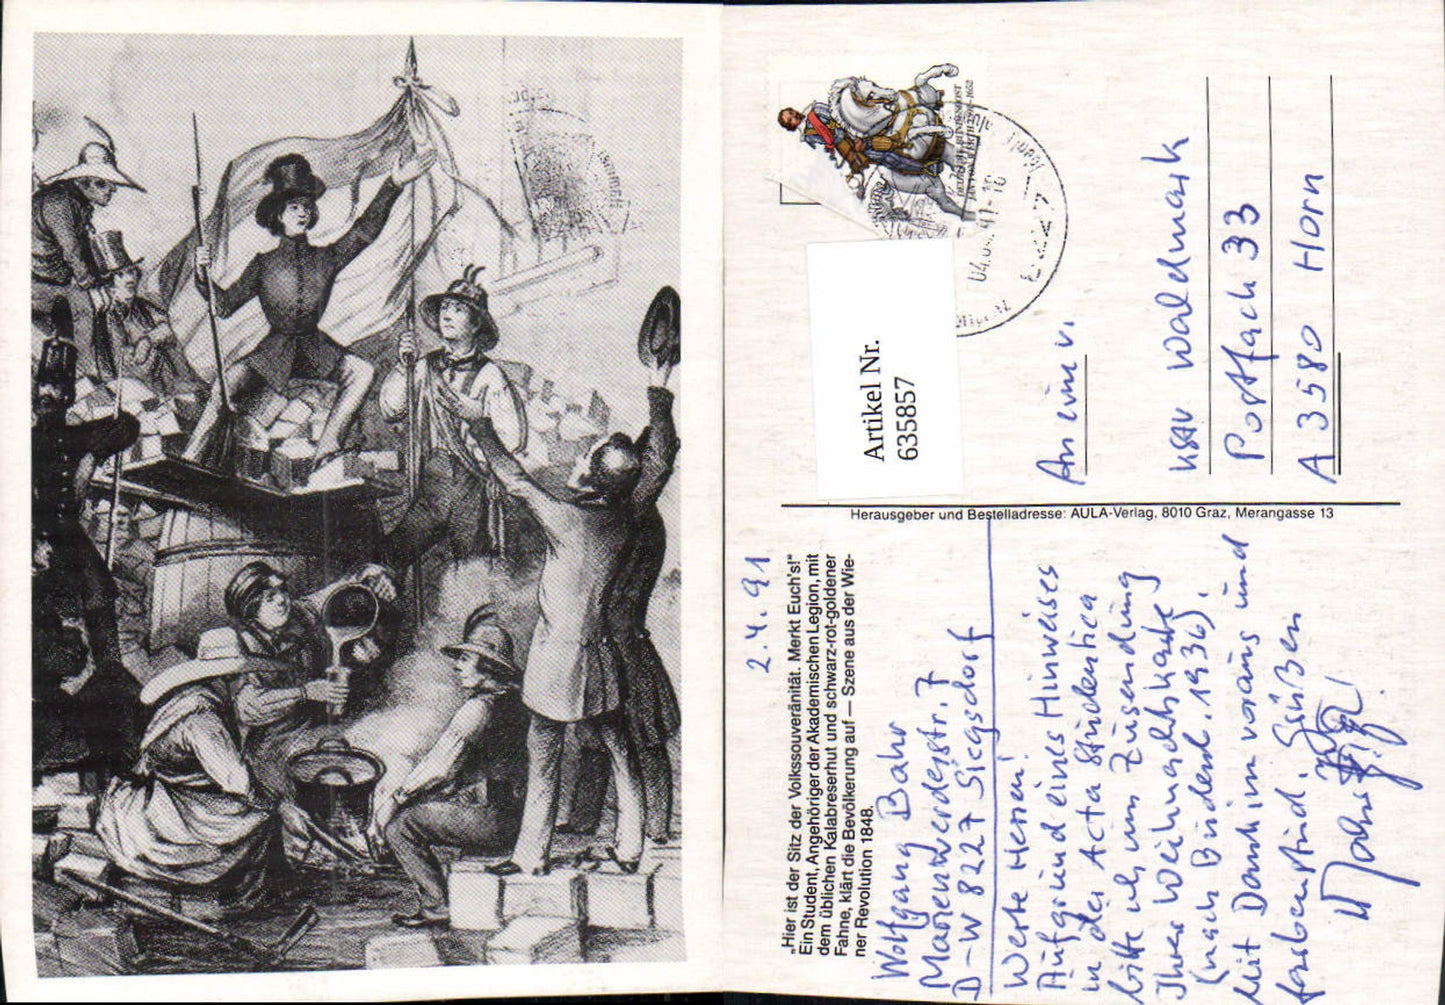 „Hier ist der Sitz der Volkssouveränität. Merkt Euch's!"
Ein Student, Angehöriger der Akademischen Legion, mit
dem üblichen Kalabreserhut und schwarz-rot-goldener
Fahne, klärt die Bevölkerung auf — Szene aus der Wie-
ner Revolution 1848.
2.4.91
Wolfgang Bahr
D-W 8227 Siegsdorf
Werte Herren!
Aufgrund eines Hinweises
in der Acta Studentica
bitte ich um Zusendung
Ihrer Weihnachtskarte
(nach Bindent. 1936).
Mit Dank im voraus und
farbenstud. Grüßen
Herausgeber und Bestelladresse: AULA-Verlag, 8010 Graz, Merangasse 13
Artikel Nr.
635857
DEUTSCHE BUNDESPOST
04.04.91-18
An eine v.
Waldmark
Postfach 33
A 3580 Horn